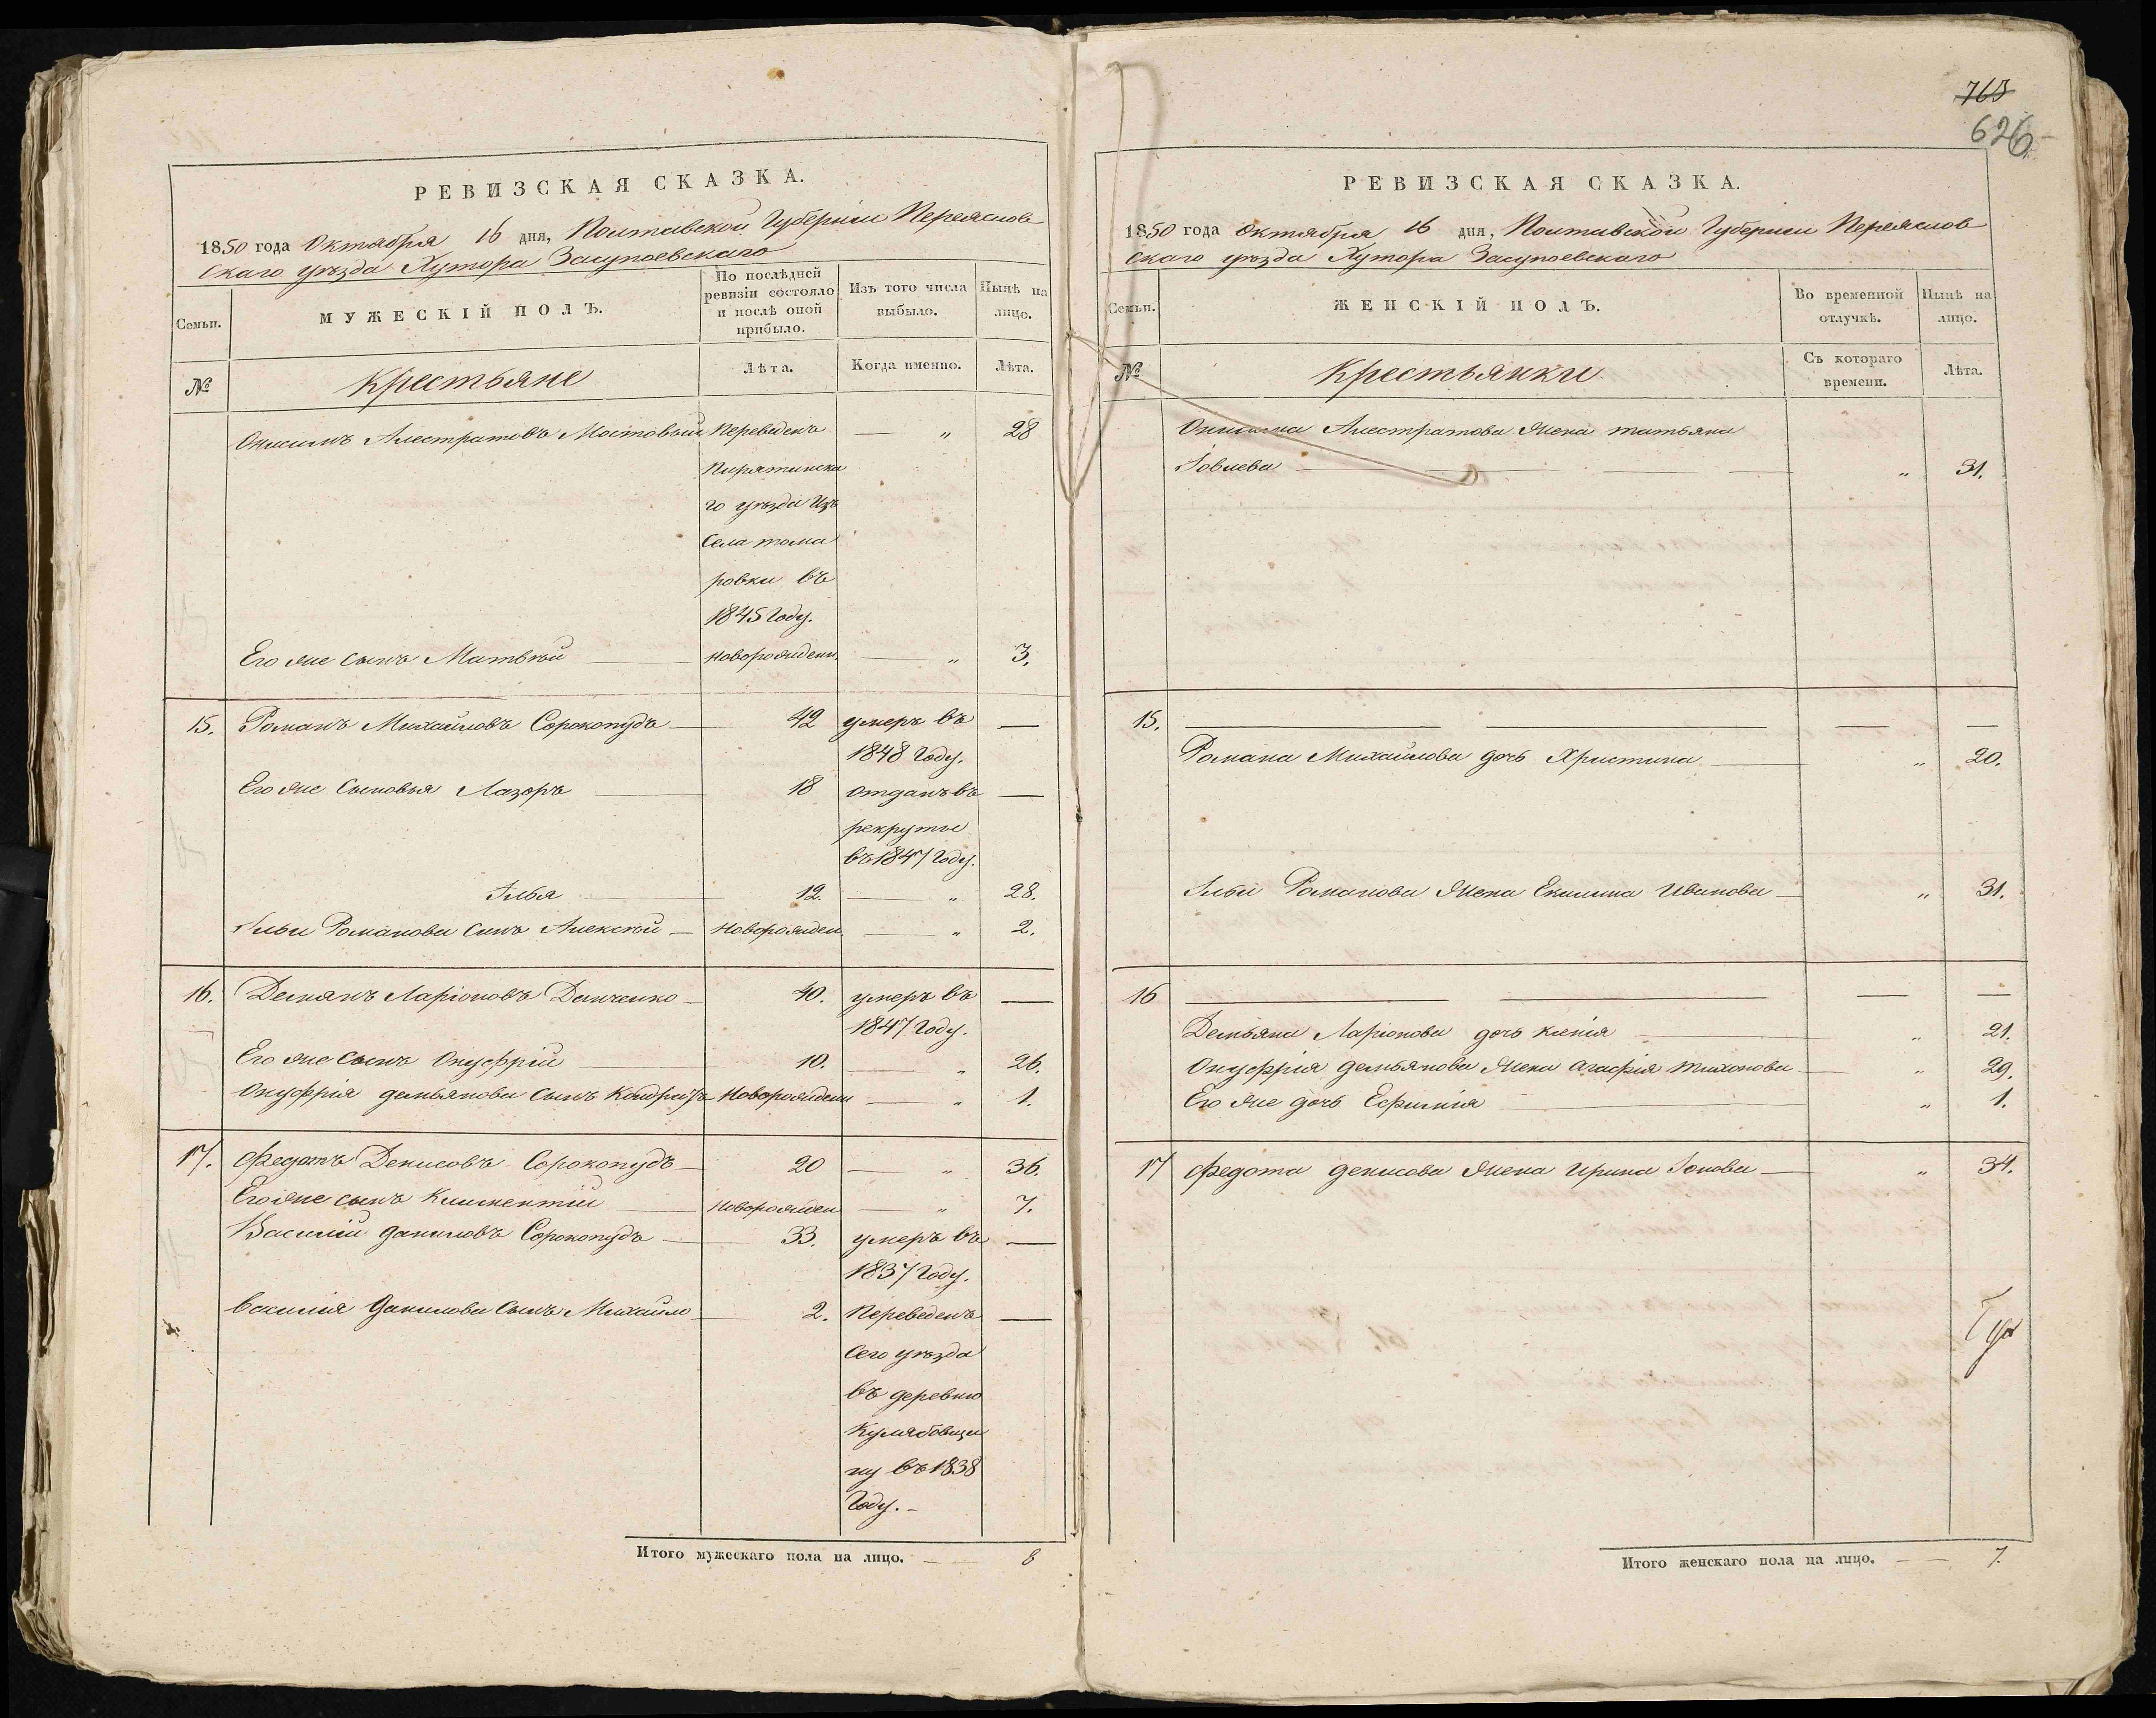 РЕВИЗСКАЯ СКАЗКА.
1850 года Октября 16 дня, Полтавской Губерніи Переяслов
скаго уѣзда Хутора Засупоевскаго
Семьи.
МУЖЕСКІЙ ПОЛЪ.
По послѣдней
ревизіи состояло
и послѣ оной
прибыло.
Изъ того числа
выбыло.
Нынѣ на
лицо.
№
Крестьяне
Лѣта.
Когда именно.
Лѣта.
Онисимъ Алестратовъ Мостовый Переведенъ — „ 28
Пирятинска
го уѣзда Изъ
Села тома
ровки въ
1845 Году.
Его же сынъ Матвѣй — новорожден. — „ 3.
15. Романъ Михайловъ Сорокопудъ — 42 умеръ въ —
1848 Году.
Его же Сыновья Лазоръ — 18 отданъ въ —
рекруты
въ 1847 Году.
Илья — 12. — „ 28.
Ильи Романова Сынъ Алексѣй — Новорожден. — „ 2.
16. Демянъ Ларіоновъ Демченко — 40. умеръ въ —
1847 Году.
Его же Сынъ Онуфрій — 10. — „ 26.
Онуфрія демьянова Сынъ Кондратъ Новорожден — „ 1.
17. Федотъ Денисовъ Сорокопудъ — 20 — „ 36.
Его же сынъ Климентій — Новорожден — „ 7.
Василій даниловъ Сорокопудъ — 33. умеръ въ —
1837 Году.
Василія Данилова Сынъ Михайло — 2. Переведенъ —
Сего уѣзда
въ деревню
Кулябовщи
ну въ 1838
Году. –
Итого мужескаго пола на лицо. — 8
765
626
РЕВИЗСКАЯ СКАЗКА.
1850 года Октября 16 дня, Полтавской Губерніи Переяслов
скаго уѣзда Хутора Засупоевскаго
Семьи.
ЖЕНСКІЙ ПОЛЪ.
Во временной
отлучкѣ.
Нынѣ на
лицо.
№
Крестьянки
Съ котораго
времени.
Лѣта.
Онисима Алестратова Жена татьяна
Іовлева — „ 31.
15. — — — —
Романа Михайлова дочь Христина — „ 20.
Ильи Романова Жена Екилина Иванова — „ 31.
16 — — — —
Демьяна Ларіонова дочь ксенія — „ 21.
Онуфрія демьянова Жена агафія тихонова — „ 29.
Его же дочь Ефимія — „ 1.
17 Федота денисова Жена Ирина Іонова — „ 34.
Итого женскаго пола на лицо. — 7.